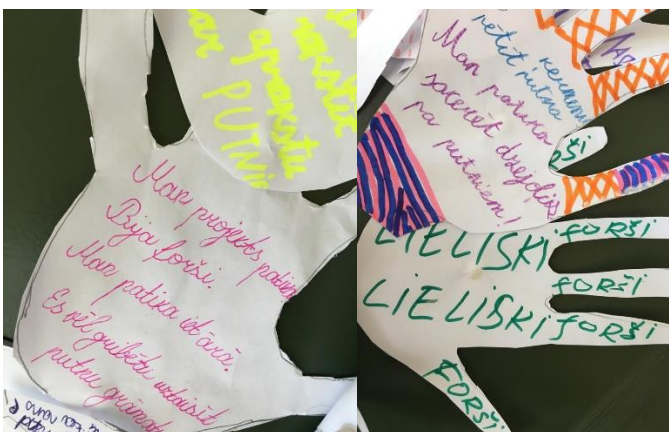 aprakstu
PUTNI
Man projekts patika
Bija forši.
Man patika iet ārā.
Es vēl gribētu uztaisīt
putnu grāmat
pētīt putna
ķermeni
Man patika
sacerēt dzejoļus
pa putniem!
ši
LIELISKI FORŠI
FORŠI
LIELISKI FORŠI
FORŠI